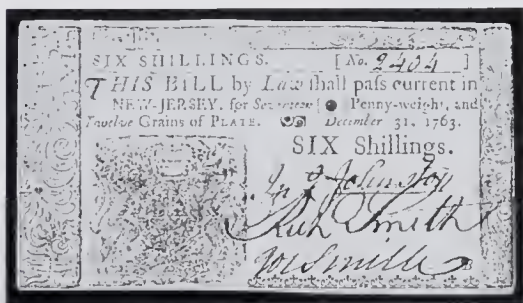 SIX SHILLINGS. [ No. 2404 ]
THIS BILL by Law shall pass current in
NEW-JERSEY, for Seventeen Penny-weight, and
Twelve Grains of PLATE. December 31. 1763.
SIX Shillings.
Johnston
Rich Smith
Jos Smith